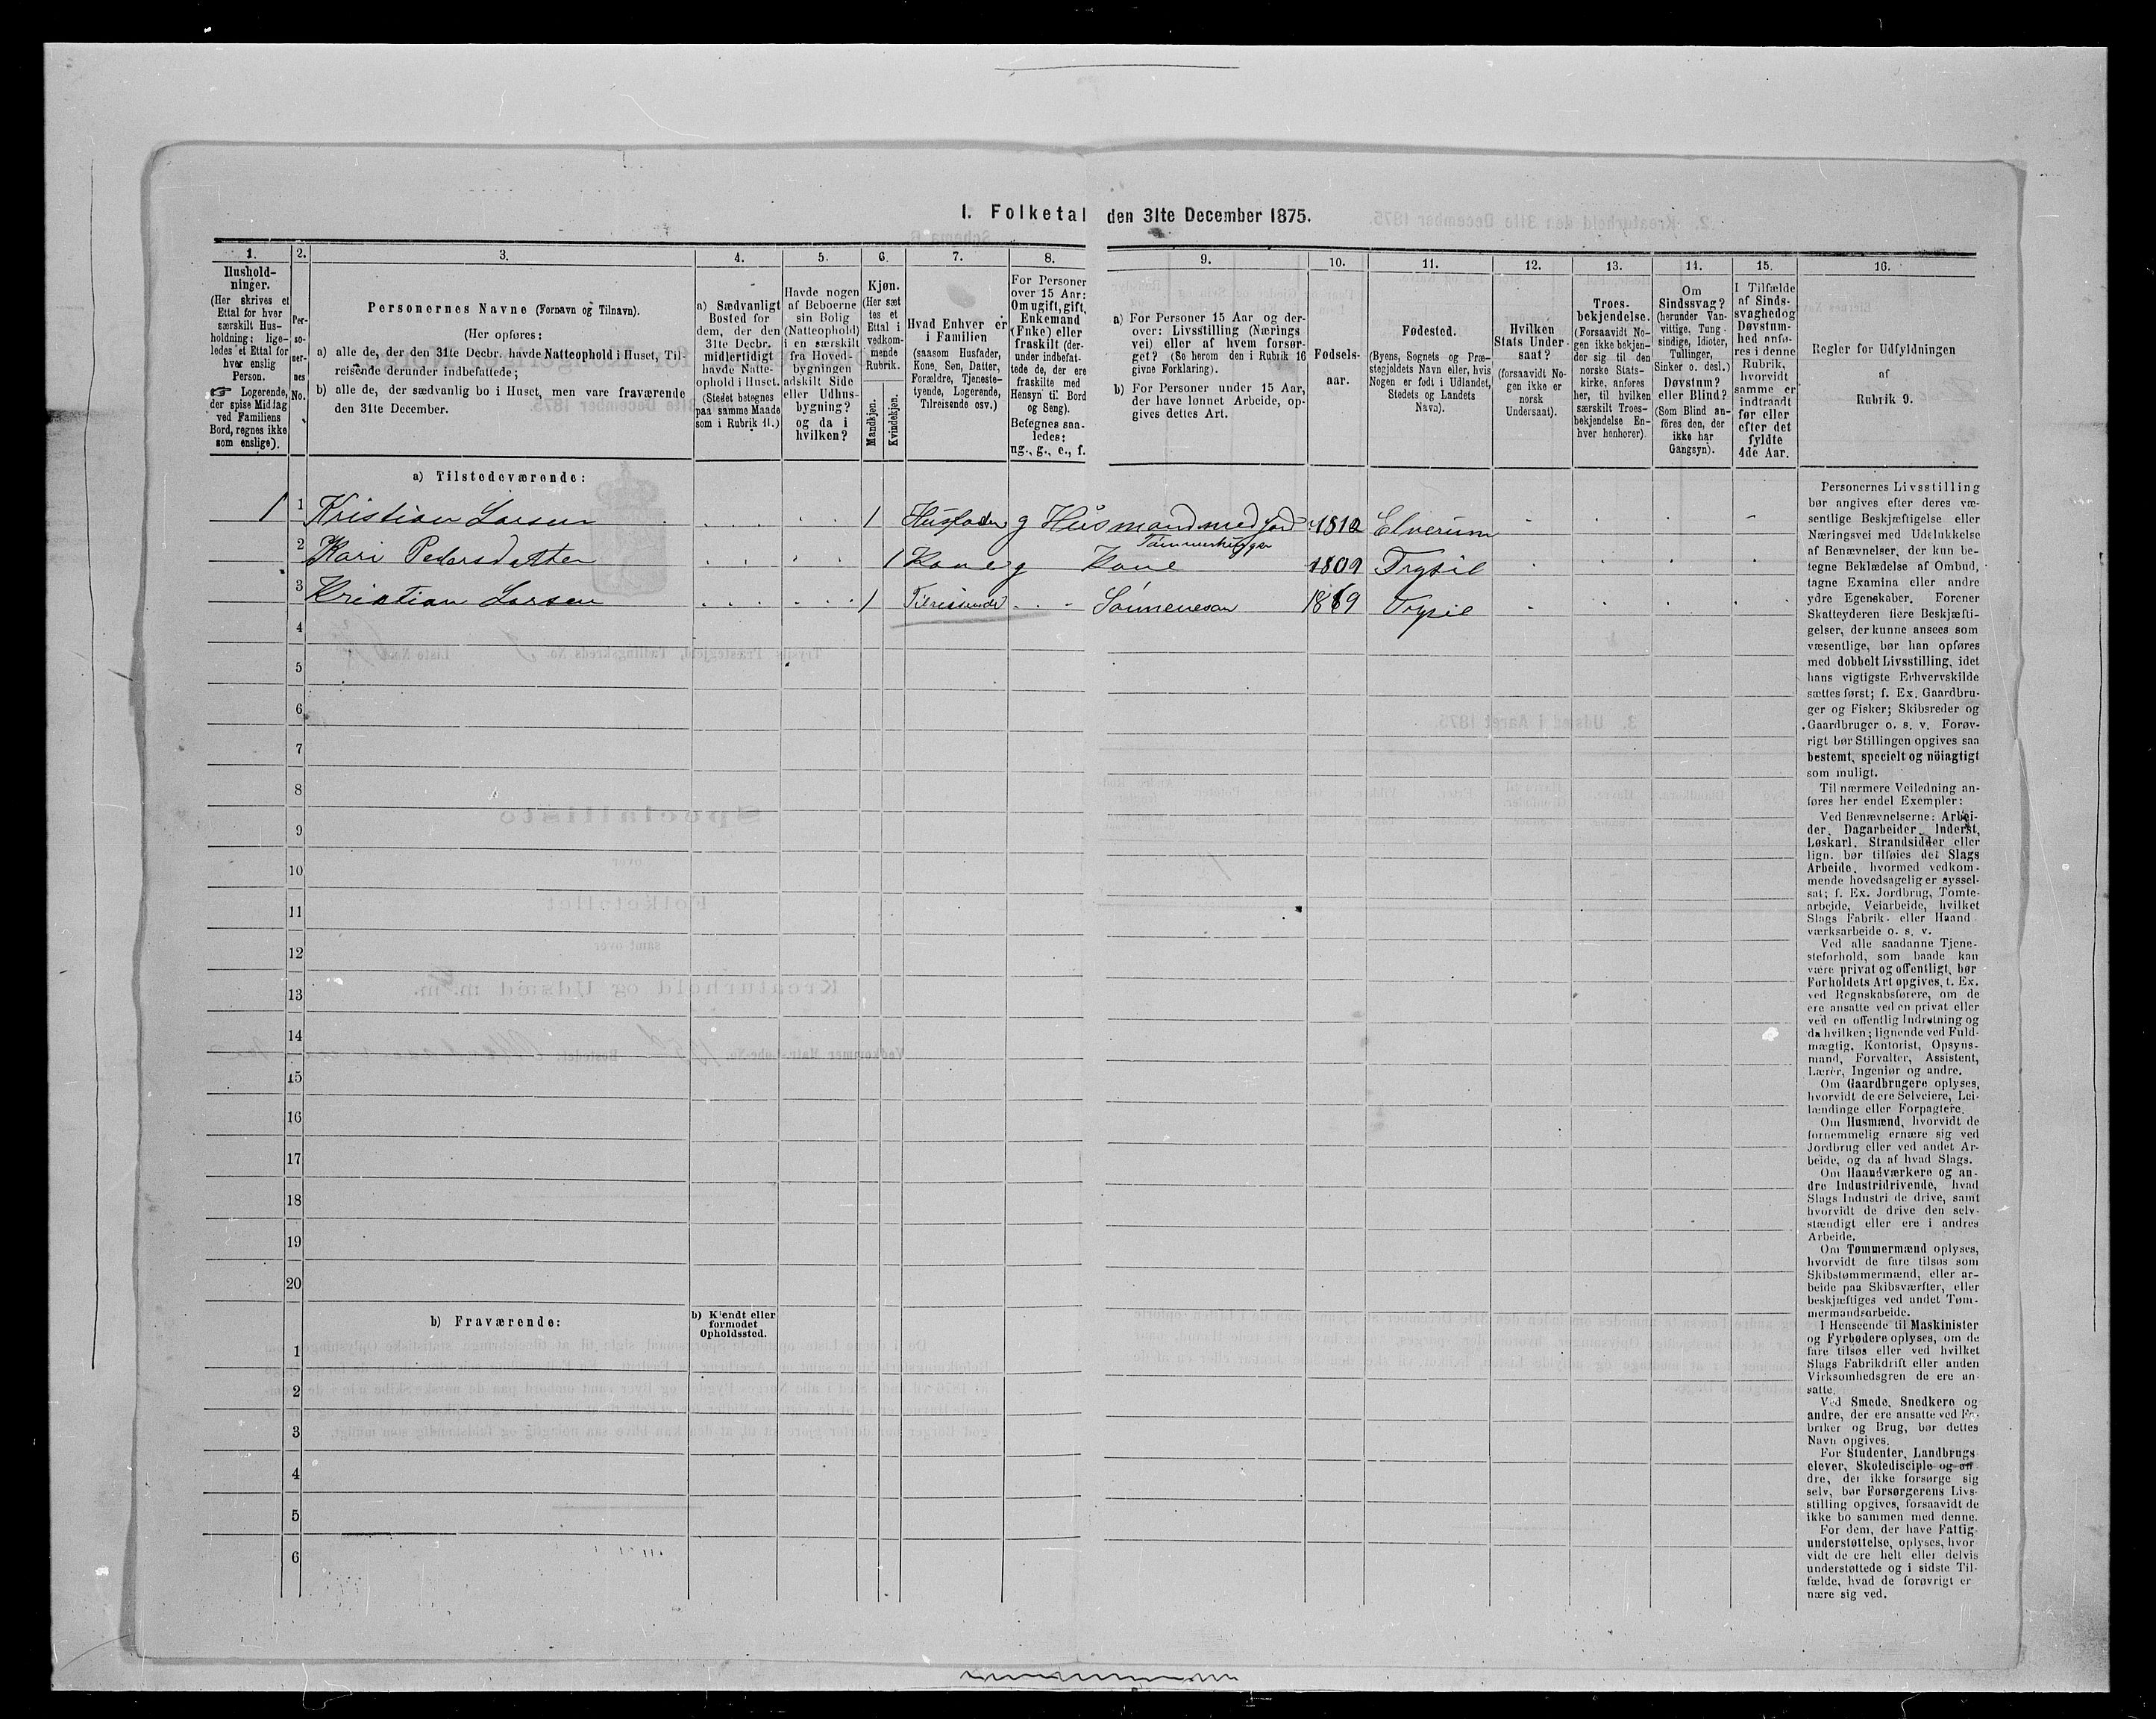 1. Folketal den 31te December 1875.
1.
Hushold-
ninger.
(Her skrives et
Ettal for hver
særskilt Hus-
holdning; lige-
ledes et Ettal for
hver enslig
Person.
☞ Logerende,
der spise Middag
ved Familiens
Bord, regnes ikke
som enslige).
2.
Per-
so-
ner-
nes
No.
3.
Personernes Navne (Fornavn og Tilnavn).
(Her opføres:
a) alle de, der den 31te Decbr. havde Natteophold i Huset, Til-
reisende derunder indbefattede;
b) alle de, der sædvanlig bo i Huset, men vare fraværende
den 31te December.
4.
a) Sædvanligt
Bosted for
dem, der den
31te Decbr.
midlertidigt
havde Natte-
ophold i Huset.
(Stedet betegnes
paa samme Maade
som i Rubrik 11.)
5.
Havde nogen
af Beboerne
sin Bolig
(Natteophold)
i en særskilt
fra Hoved-
bygningen
adskilt Side
eller Udhus-
bygning?
og da i
hvilken?
6.
Kjøn.
(Her sæt
tes et
Ettal i
vedkom-
mende
Rubrik.
Mandkjøn.
Kvindekjøn.
7.
Hvad Enhver er
i Familien
(saasom Husfader,
Kone, Søn, Datter,
Forældre, Tjeneste-
tyende, Logerende,
Tilreisende osv.)
8.
For Personer
over 15 Aar:
Om ugift, gift,
Enkemand
(Enke) eller
fraskilt (der-
under indbefat-
tede de, der ere
fraskilte med
Hensyn til Bord
og Seng).
Betegnes saa-
ledes:
ug., g., e., f.
9.
a) For Personer 15 Aar og der-
over: Livsstilling (Nærings
vei) eller af hvem forsør-
get? (Se herom den i Rubrik 16
givne Forklaring).
b) For Personer under 15 Aar,
der have lønnet Arbeide, op-
gives dettes Art.
10.
Fødsels-
aar.
11.
Fødested.
(Byens, Sognets og Præ-
stegjeldets Navn eller, hvis
Nogen er født i Udlandet,
Stedets og Landets
Navn).
12.
Hvilken
Stats Under-
saat?
(forsaavidt No-
gen ikke er
norsk
Undersaat).
13.
Troes-
bekjendelse.
(Forsaavidt No-
gen ikke bekjen-
der sig til den
norske Stats-
kirke, anføres
her, til hvilken
særskilt Troes-
bekjendelse En-
hver henhører).
14.
Om
Sindssvag?
(herunder Van-
vittige, Tung-
sindige, Idioter,
Tullinger,
Sinker o. desl.)
Døvstum?
eller Blind?
(Som Blind an-
föres den, der
ikke har
Gangsyn).
15.
I Tilfælde
af Sinds-
svaghed og
Døvstum-
hed anfø-
res i denne
Rubrik,
hvorvidt
samme er
indtraadt
før eller
efter det
fyldte
4de Aar.
16.
Regler for Udfyldningen
af
Rubrik 9.
a) Tilstedeværende:
1 1 Kristian Larsen 1 Husfader g Husmand med jord 1812 Elverum
Tömmerhugger
2 Kari Pedersdatter 1 Kone g Kone 1809 Trysil
3 Kristian Larsen 1 Tilreisende Sönneson 1869 Trysil
4
5
6
7
8
9
10
11
12
13
14
15
16
17
18
19
20
b) Fraværende:
b) Kjendt eller
formodet
Opholdssted.
1
2
3
4
5
6
Personernes Livsstilling
bør angives efter deres væ-
sentlige Beskjæftigelse eller
Næringsvei med Udelukkelse
af Benævnelser, der kun be-
tegne Beklædelse af Ombud,
tagne Examina eller andre
ydre Egenskaber. Forener
Skatteyderen flere Beskjæfti-
gelser, der kunne ansees som
væsentlige, bør han opføres
med dobbelt Livsstilling, idet
hans vigtigste Erhvervskilde
sættes først; f. Ex. Gaardbru-
ger og Fisker; Skibsreder og
Gaardbruger o. s. v. Forøv-
rigt bør Stillingen opgives saa
bestemt, specielt og nöiagtigt
som muligt.
Til nærmere Veiledning an-
føres her endel Exempler:
Ved Benævnelserne: Arbei-
der, Dagarbeider, Inderst,
Løskarl, Strandsidder eller
lign. bør tilføies det Slags
Arbeide, hvormed vedkom-
mende hovedsagelig er syssel-
sat; f. Ex. Jordbrug, Tomte-
arbeide, Veiarbeide, hvilket
Slags Fabrik- eller Haand-
værksarbeide o. s. v.
Ved alle saadanne Tjene-
steforhold, som baade kan
være privat og offentligt, bør
Forholdets Art opgives, f. Ex.
ved Regnskabsførere, om de
ere ansatte ved en privat eller
ved en offentlig Indretning og
da hvilken; lignende ved Fuld-
mægtig, Kontorist, Opsyns-
mand, Forvalter, Assistent,
Lærer, Ingeniør og andre.
Om Gaardbrugere oplyses,
hvorvidt de ere Selveiere, Lei-
lændinge eller Forpagtere.
Om Husmænd, hvorvidt de
fornemmelig ernære sig ved
Jordbrug eller ved andet Ar-
beide, og da af hvad Slags.
Om Haandværkere og an-
dre Industridrivende, hvad
Slags Industri de drive, samt
hvorvidt de drive den selv-
stændigt eller ere i andres
Arbeide.
Om Tømmermænd oplyses,
hvorvidt de fare tilsøs som
Skibstømmermænd, eller ar-
beide paa Skibsværfter, eller
beskjæftiges ved andet Tøm-
mermandsarbeide.
I Henseende til Maskinister
og Fyrbødere oplyses, om de
fare tilsøs eller ved hvilket
Slags Fabrikdrift eller anden
Virksomhedsgren de ere an-
satte.
Ved Smede, Snedkere og
andre, der ere ansatte ved Fa-
briker og Brug, bør dettes
Navn opgives.
For Studenter, Landbrugs-
elever, Skoledisciple og an-
dre, der ikke forsørge sig
selv, bør Forsørgerens Livs-
stilling opgives, forsaavidt de
ikke bo sammen med denne.
For dem, der have Fattig-
understøttelse, oplyses, hvor-
vidt de ere helt eller delvis
understøttede og i sidste Til-
fælde, hvad de forøvrigt er-
nære sig ved.